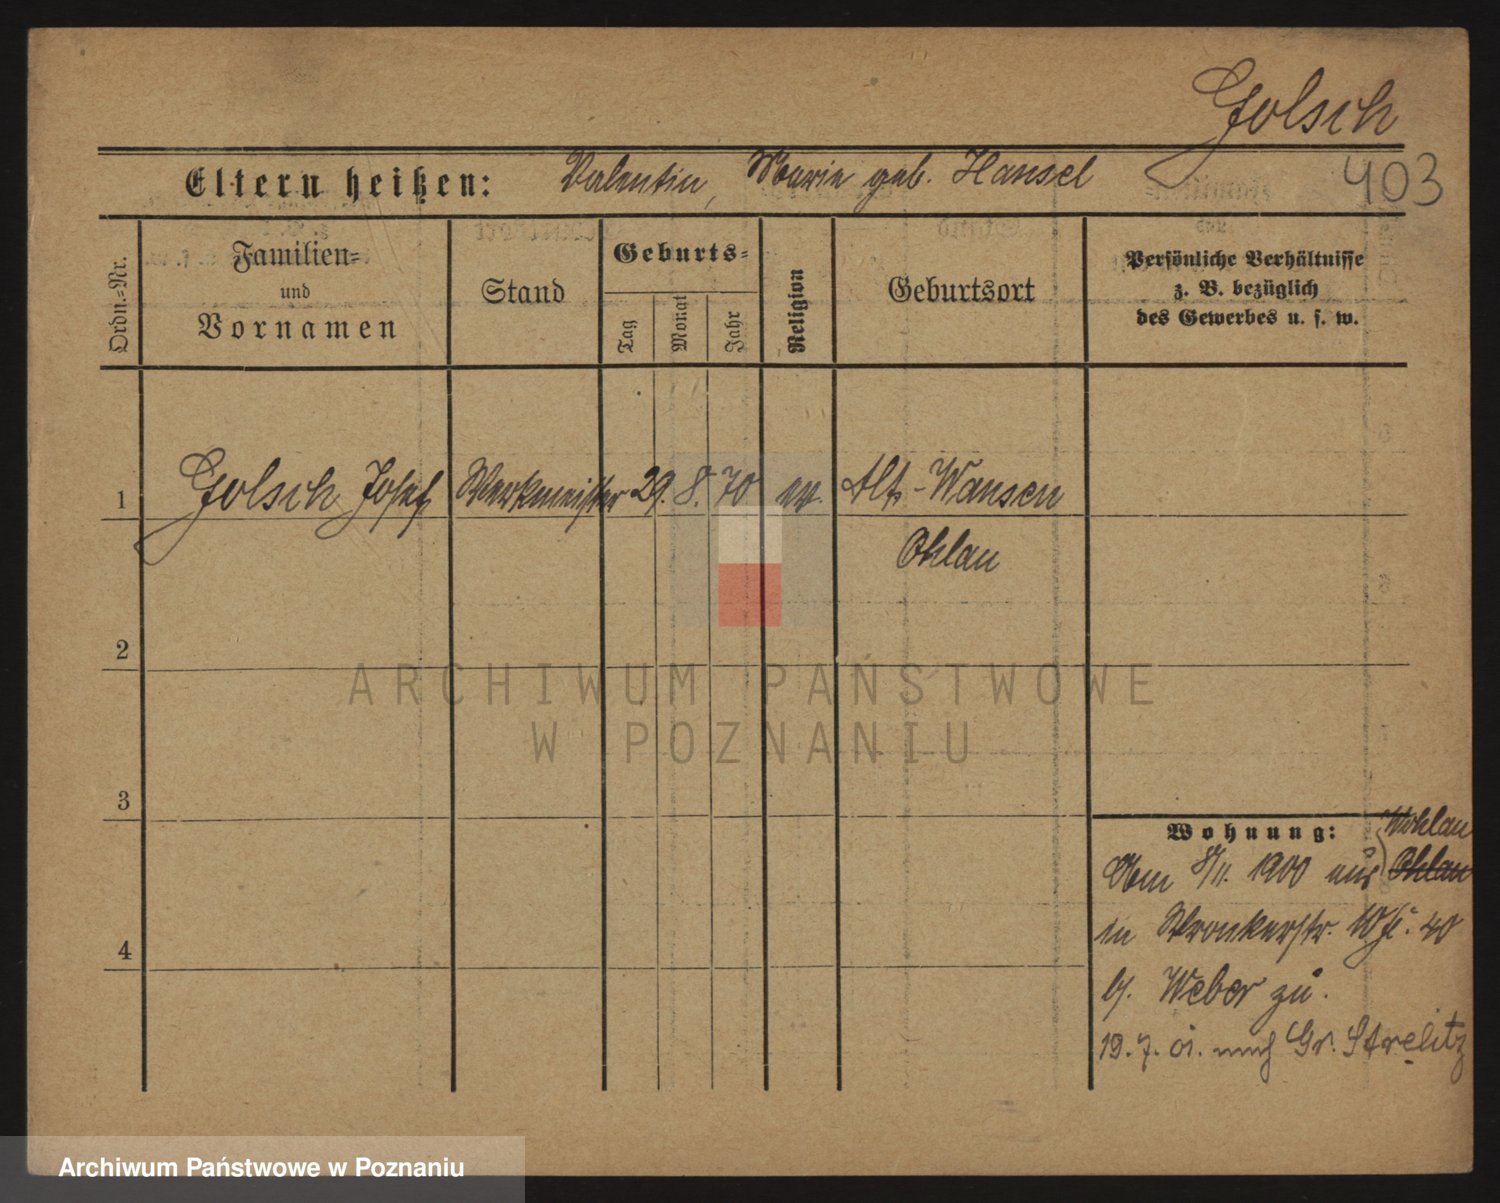 Golsch
Eltern heißen: Valentin, Marie geb. Hansel
403
Ordn.=Nr.
Familien=
und
Vornamen
Stand
Geburts=
Tag
Monat
Jahr
Religion
Geburtsort
Persönliche Verhältnisse
z. B. bezüglich
des Gewerbes u. s. w.
1 Golsch Josef Werkmeister 29. 8. 70 ev. Alt-Wansen
Ohlau
2
ARCHIWUM PAŃSTWOWE
W POZNANIU
3
Wohnung: Wohlau
8/11. 1900 aus Ohlau
in Wronkerstr. 10 40
b. Weber zu.
4
19. 7. 01. nach Gr. Strelitz
Archiwum Państwowe w Poznaniu